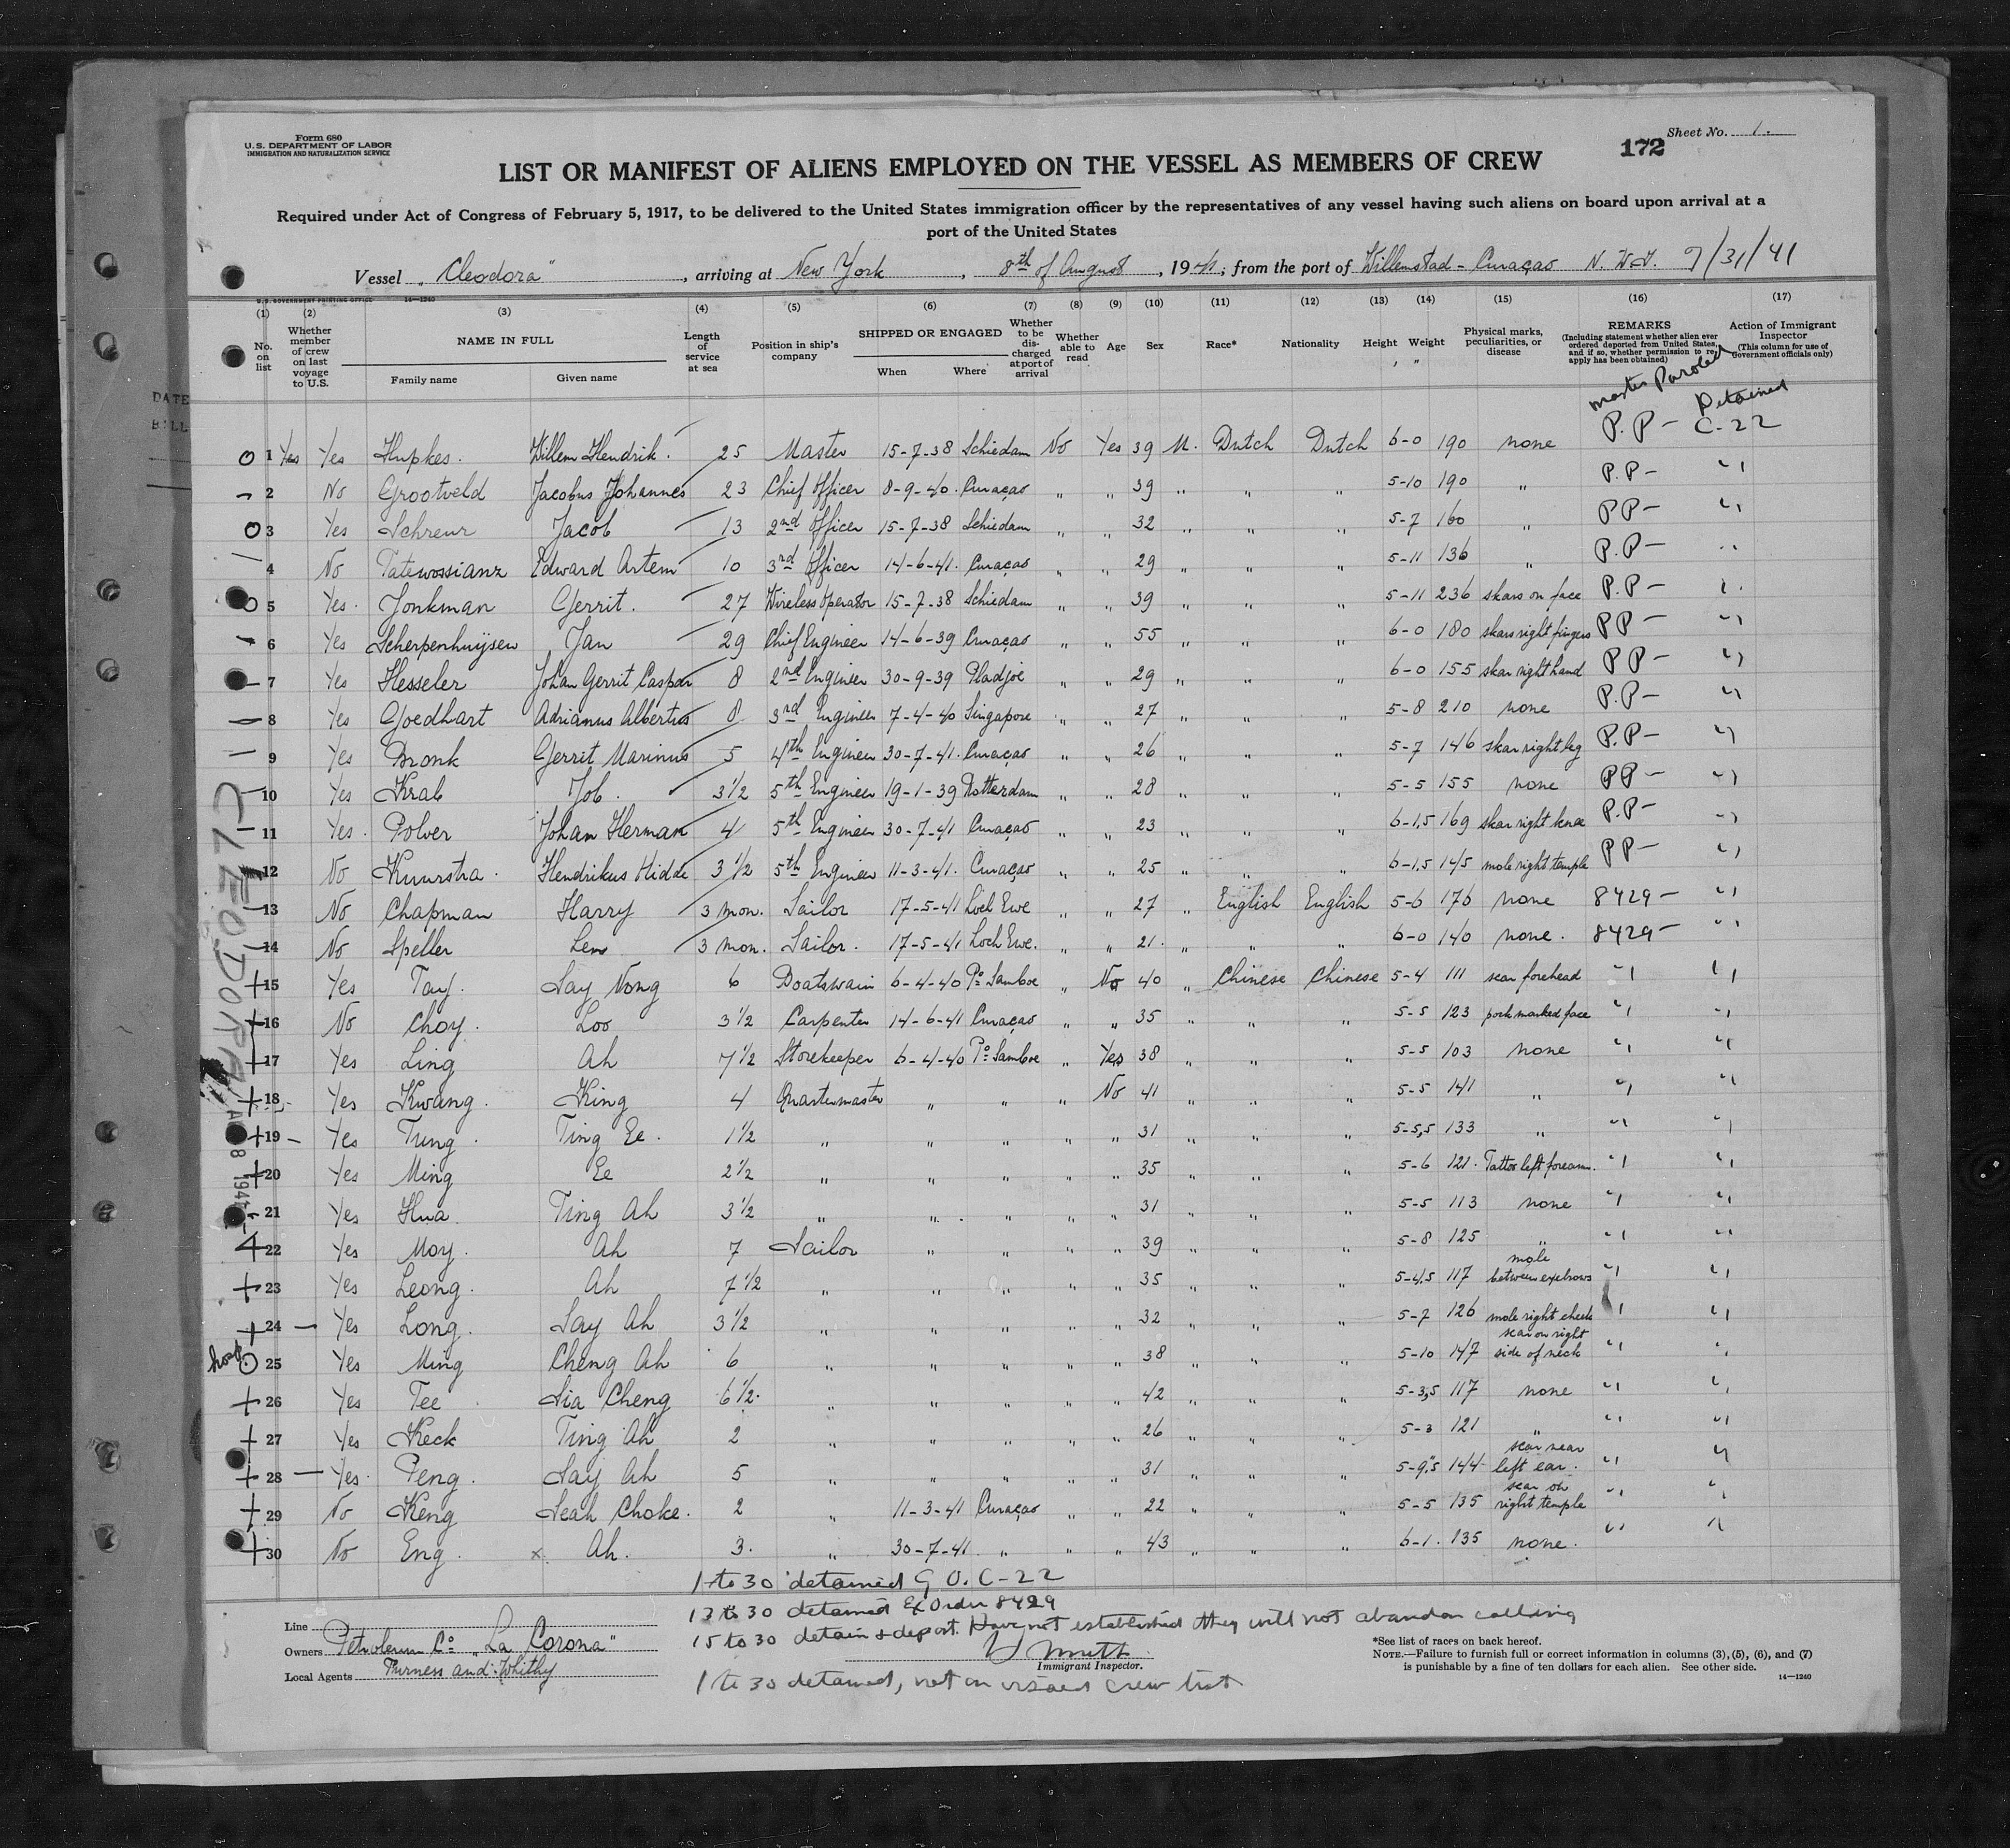 Form 680
U.S. DEPARTMENT OF LABOR
IMMIGRATION AND NATURALIZATION SERVICE
Sheet No. 1.
172
LIST OR MANIFEST OF ALIENS EMPLOYED ON THE VESSEL AS MEMBERS OF CREW
Required under Act of Congress of February 5, 1917, to be delivered to the United States immigration officer by the representatives of any vessel having such aliens on board upon arrival at a
port of the United States
Vessel „Cleodora", arriving at New York, 8th of August, 1941; from the port of Willemstad - Curaçao N.W.I. 7/31/41
U.S. GOVERNMENT PRINTING OFFICE 14—1240
(1) No. on list
(2) Whether member of crew on last voyage to U.S.
(3) NAME IN FULL Family name Given name
(4) Length of service at sea
(5) Position in ship's company
(6) SHIPPED OR ENGAGED When Where
(7) Whether to be discharged at port of arrival
(8) Whether able to read
(9) Age
(10) Sex
(11) Race*
(12) Nationality
(13) Height ′ ″
(14) Weight
(15) Physical marks, peculiarities, or disease
(16) REMARKS (Including statement whether alien ever ordered deported from United States, and if so, whether permission to reapply has been obtained)
(17) Action of Immigrant Inspector (This column for use of Government officials only)
DATE
BILL
Master Paroled
Detained
1 Yes Yes Hupkes. Willem Hendrik. 25 Master 15-7-38 Schiedam No Yes 39 M. Dutch Dutch 6-0 190 none P.P - C-22
2 No Grootveld Jacobus Johannes 23 Chief Officer 8-9-40. Curaçao „ „ 39 „ „ „ 5-10 190 „ P.P - "
3 Yes Schreur Jacob 13 2nd Officer 15-7-38 Schiedam „ „ 32 „ „ „ 5-7 160 „ PP - "
4 No Tatewossianz Edward Artem 10 3rd Officer 14-6-41. Curaçao „ „ 29 „ „ „ 5-11 136 „ P.P - "
5 Yes. Jonkman Gerrit. 27 Wireless Operator 15-7-38 Schiedam „ „ 39 „ „ „ 5-11 236 skars on face P.P - "
6 Yes Scherpenhuijsen Jan 29 Chief Engineer 14-6-39 Curaçao „ „ 55 „ „ „ 6-0 180 skars right fingers PP - "
7 Yes Hesseler Johan Gerrit Caspar 8 2nd Engineer 30-9-39 Pladjoe „ „ 29 „ „ „ 6-0 155 skar right hand PP - "
8 Yes Goedhart Adrianus Albertus 8 3rd Engineer 7-4-40 Singapore „ „ 27 „ „ „ 5-8 210 none P.P - "
9 Yes Bronk Gerrit Marinus 5 4th Engineer 30-7-41. Curaçao „ „ 26 „ „ „ 5-7 146 skar right leg P.P - "
10 Yes Krab Job. 3½ 5th Engineer 19-1-39 Rotterdam „ „ 28 „ „ „ 5-5 155 none PP - "
11 Yes. Polver Johan Herman 4 5th Engineer 30-7-41 Curaçao „ „ 23 „ „ „ 6-1,5 169 skar right knee P.P - "
12 No Kuurstra. Hendrikus Hidde 3½ 5th Engineer 11-3-41. Curaçao „ „ 25 „ „ „ 6-1,5 145 mole right temple PP - "
13 No Chapman Harry 3 mon. Sailor 17-5-41 Loch Ewe „ „ 27 „ English English 5-6 176 none 8429 - "
14 No Speller Len 3 mon. Sailor. 17-5-41 Loch Ewe. „ „ 21. „ „ „ 6-0 140 none. 8429 - "
15 Yes Tay. Say Nong 6 Boatswain 6-4-40 Po Samboe „ No 40 „ Chinese Chinese 5-4 111 scar forehead " "
16 No Choy. Loo 3½ Carpenter 14-6-41 Curaçao „ „ 35 „ „ „ 5-5 123 pock marked face " "
17 Yes Ling Ah 7½ Storekeeper 6-4-40 Po Samboe „ Yes 38 „ „ „ 5-5 103 none " "
18 Yes Kwang. King 4 Quartermaster „ „ „ No 41 „ „ „ 5-5 141 „ " "
19 Yes Tung. Ting Ee. 1½ „ „ „ „ „ 31 „ „ „ 5-5,5 133 „ " "
20 Yes Ming Ee 2½ „ „ „ „ „ 35 „ „ „ 5-6 121. Tattoo left forearm. " "
21 Yes Hua Ting Ah 3½ „ „ „ „ „ 31 „ „ „ 5-5 113 none " "
22 Yes Moy. Ah 7 Sailor „ „ „ „ 39 „ „ „ 5-8 125 „ " "
23 Yes Leong. Ah 7½ „ „ „ „ „ 35 „ „ „ 5-4,5 117 mole between eyebrows " "
24 Yes Long. Say Ah 3½ „ „ „ „ „ 32 „ „ „ 5-7 126 mole right cheek " "
hosp. 25 Yes Ming Cheng Ah 6 „ „ „ „ „ 38 „ „ „ 5-10 147 scar on right side of neck " "
26 Yes Tee Sia Cheng 6½. „ „ „ „ „ 42 „ „ „ 5-3,5 117 none " "
27 Yes Keck Ting Ah 2 „ „ „ „ „ 26 „ „ „ 5-3 121 „ " "
28 Yes. Peng. Say Ah 5 „ „ „ „ „ 31 „ „ „ 5-9,5 144 scar near left ear. " "
29 No Keng Seah Choke. 2 „ 11-3-41 Curaçao „ „ 22 „ „ „ 5-5 135 scar on right temple " "
30 No Eng. x Ah. 3. „ 30-7-41 „ „ „ 43 „ „ „ 6-1. 135 none. " "
CLEODORA
AUG 8 1941
1 to 30 detained G.O. C-22
13 to 30 detained Ex Order 8429
15 to 30 detain & deport. Have not established they will not abandon calling
Line
Owners Petroleum Co. „La Corona"
Local Agents Furness and Whithy
Immigrant Inspector.
1 to 30 detained, not on visaed crew list
*See list of races on back hereof.
NOTE.—Failure to furnish full or correct information in columns (3), (5), (6), and (7)
is punishable by a fine of ten dollars for each alien. See other side.
14—1240